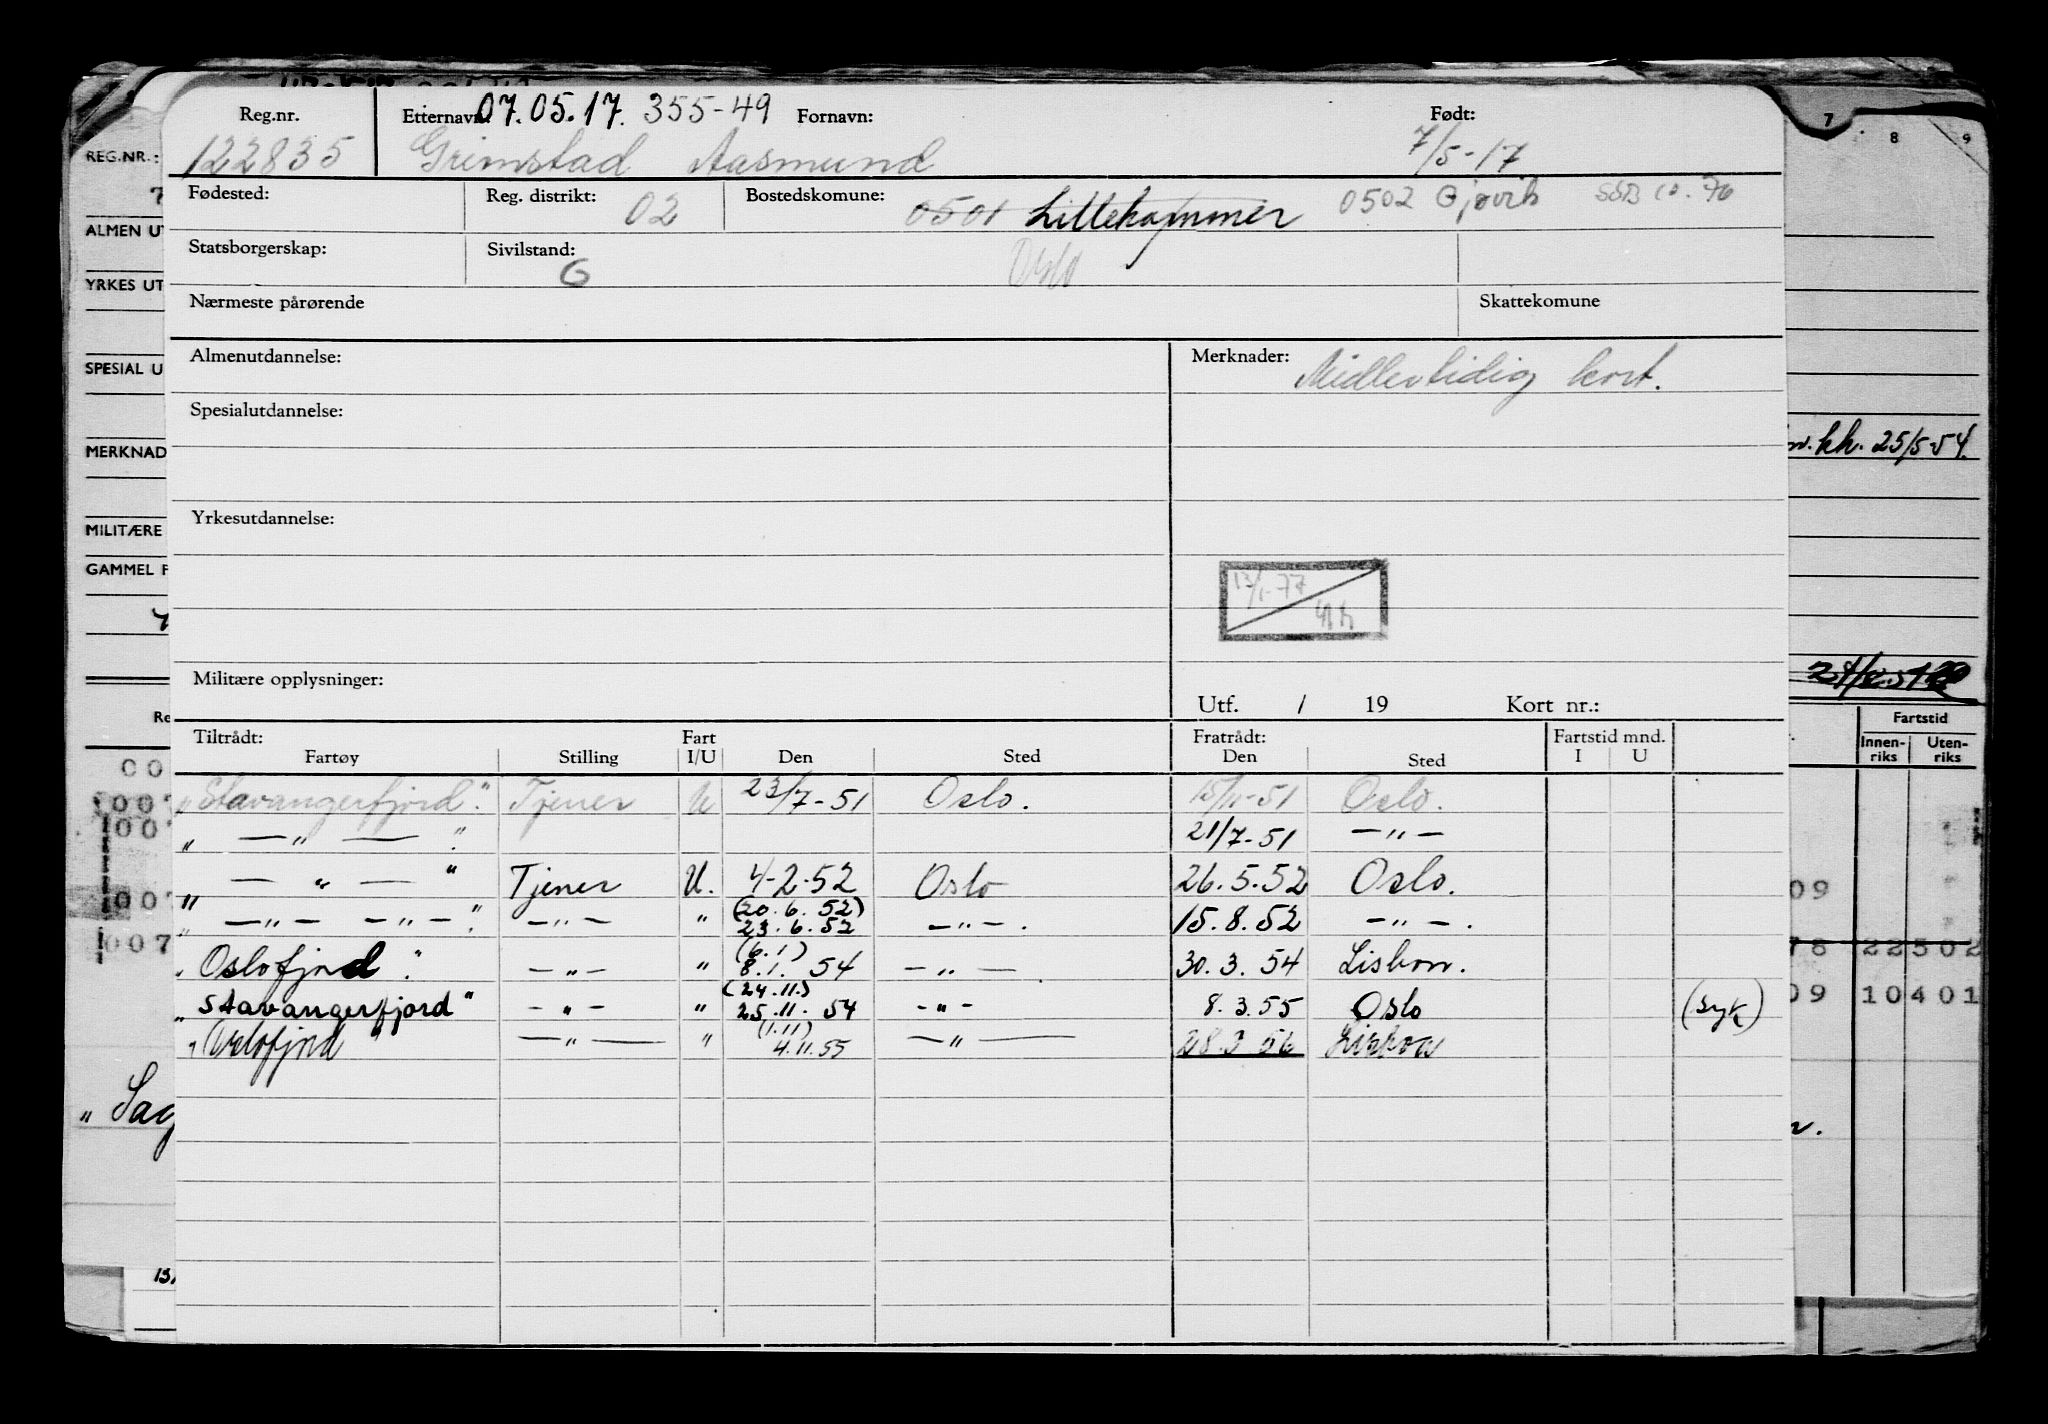 Reg.nr. Etternavn: 07.05.17. 355-49 Fornavn: Født:
122835 Grimstad Aasmund 7/5-17
Fødested: Reg. distrikt: 02 Bostedskomune: 0501 Lillehammer 0502 Gjøvik SSB 10.76
Statsborgerskap: Sivilstand: G Oslo
Nærmeste pårørende Skattekomune
Almenutdannelse: Merknader: Midlertidig kort.
Spesialutdannelse:
Yrkesutdannelse:
Militære opplysninger:
Utf. / 19 Kort nr.:
Tiltrådt: Fart Fratrådt: Fartstid mnd.
Fartøy Stilling I/U Den Sted Den Sted I U
"Stavangerfjord". Tjener U 23/7-51 Oslo. 15/11-51 Oslo.
" — " — ". 21/7-51 — " —
" — " — " Tjener U. 4-2-52 Oslo 26.5.52 Oslo.
" — " — — " — ". — " — " (20.6.52) 23.6.52 — " — . 15.8.52 — " — .
"Oslofjord". — " — " (6.1) 8.1. 54 — " — 30.3.54 Lisbon.
"Stavangerfjord" — " — " (24.11.) 25.11.54 — " — 8.3.55 Oslo (syk)
"Oslofjord" — " — " (1.11) 4.11.55 — " — 28.3 56 Lisboa
REG.NR.:
ALMEN UT
YRKES UT
SPESIAL U
MERKNAD
MILITÆRE
GAMMEL F
Re
00
007
007
007
007
" Sag
7 8 9
kk. 25/5-54.
Fartstid
Innen-riks Uten-riks
09
78 22502
09 10401